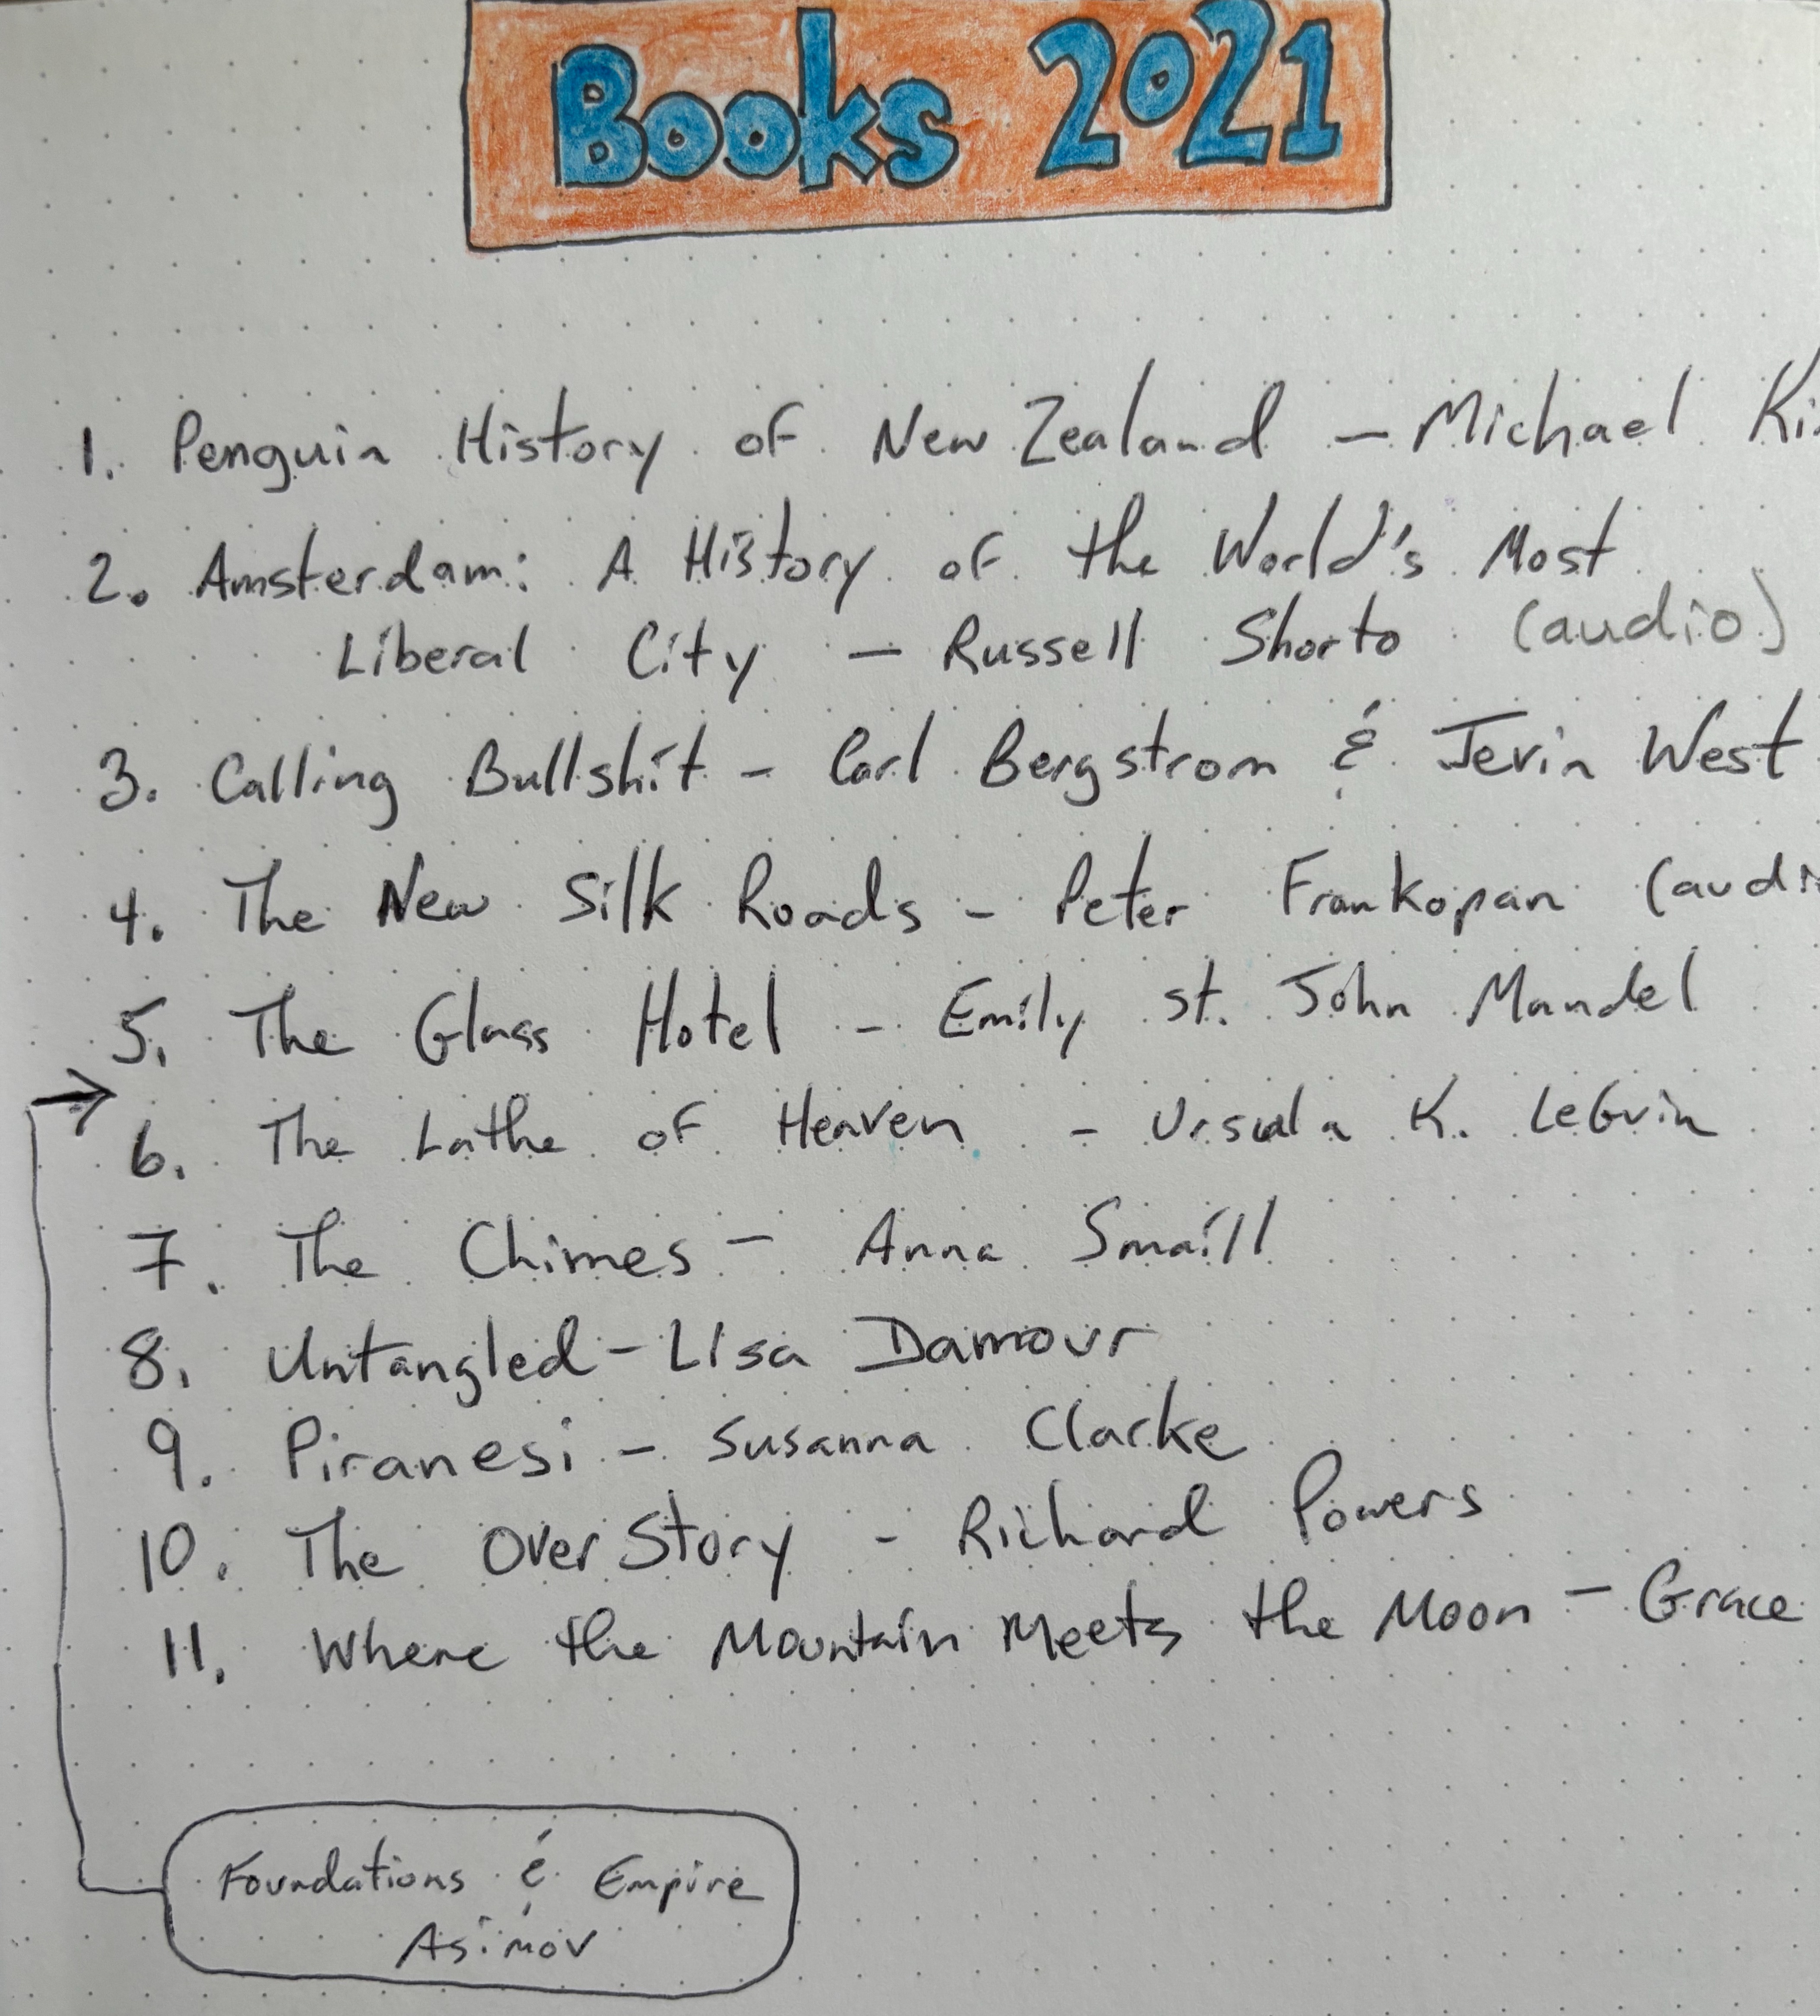 Books 2021
1. Penguin History of New Zealand - Michael Ki
2. Amsterdam: A History of the World's Most
Liberal City - Russell Shorto (audio)
3. Calling Bullshit - Carl Bergstrom & Jevin West
4. The New Silk Roads - Peter Frankopan (audi
5. The Glass Hotel - Emily St. John Mandel
6. The Lathe of Heaven - Ursula K. LeGuin
7. The Chimes - Anna Smaill
8. Untangled - Lisa Damour
9. Piranesi - Susanna Clarke
10. The OverStory - Richard Powers
11. Where the Mountain Meets the Moon - Grace
Foundations & Empire
Asimov